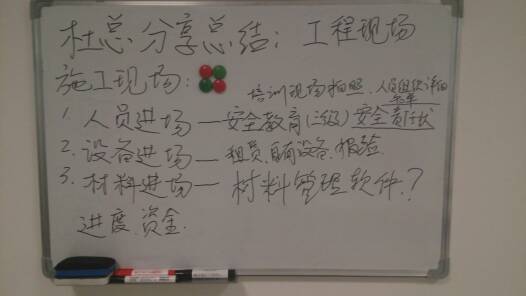 杜总分享总结：工程现场
施工现场：
培训现场拍照、人员组织详细
名单
1、人员进场—安全教育(三级)安全责任状
2、设备进场—租赁、自有设备、报验
3、材料进场—材料管理软件？
进度、资金